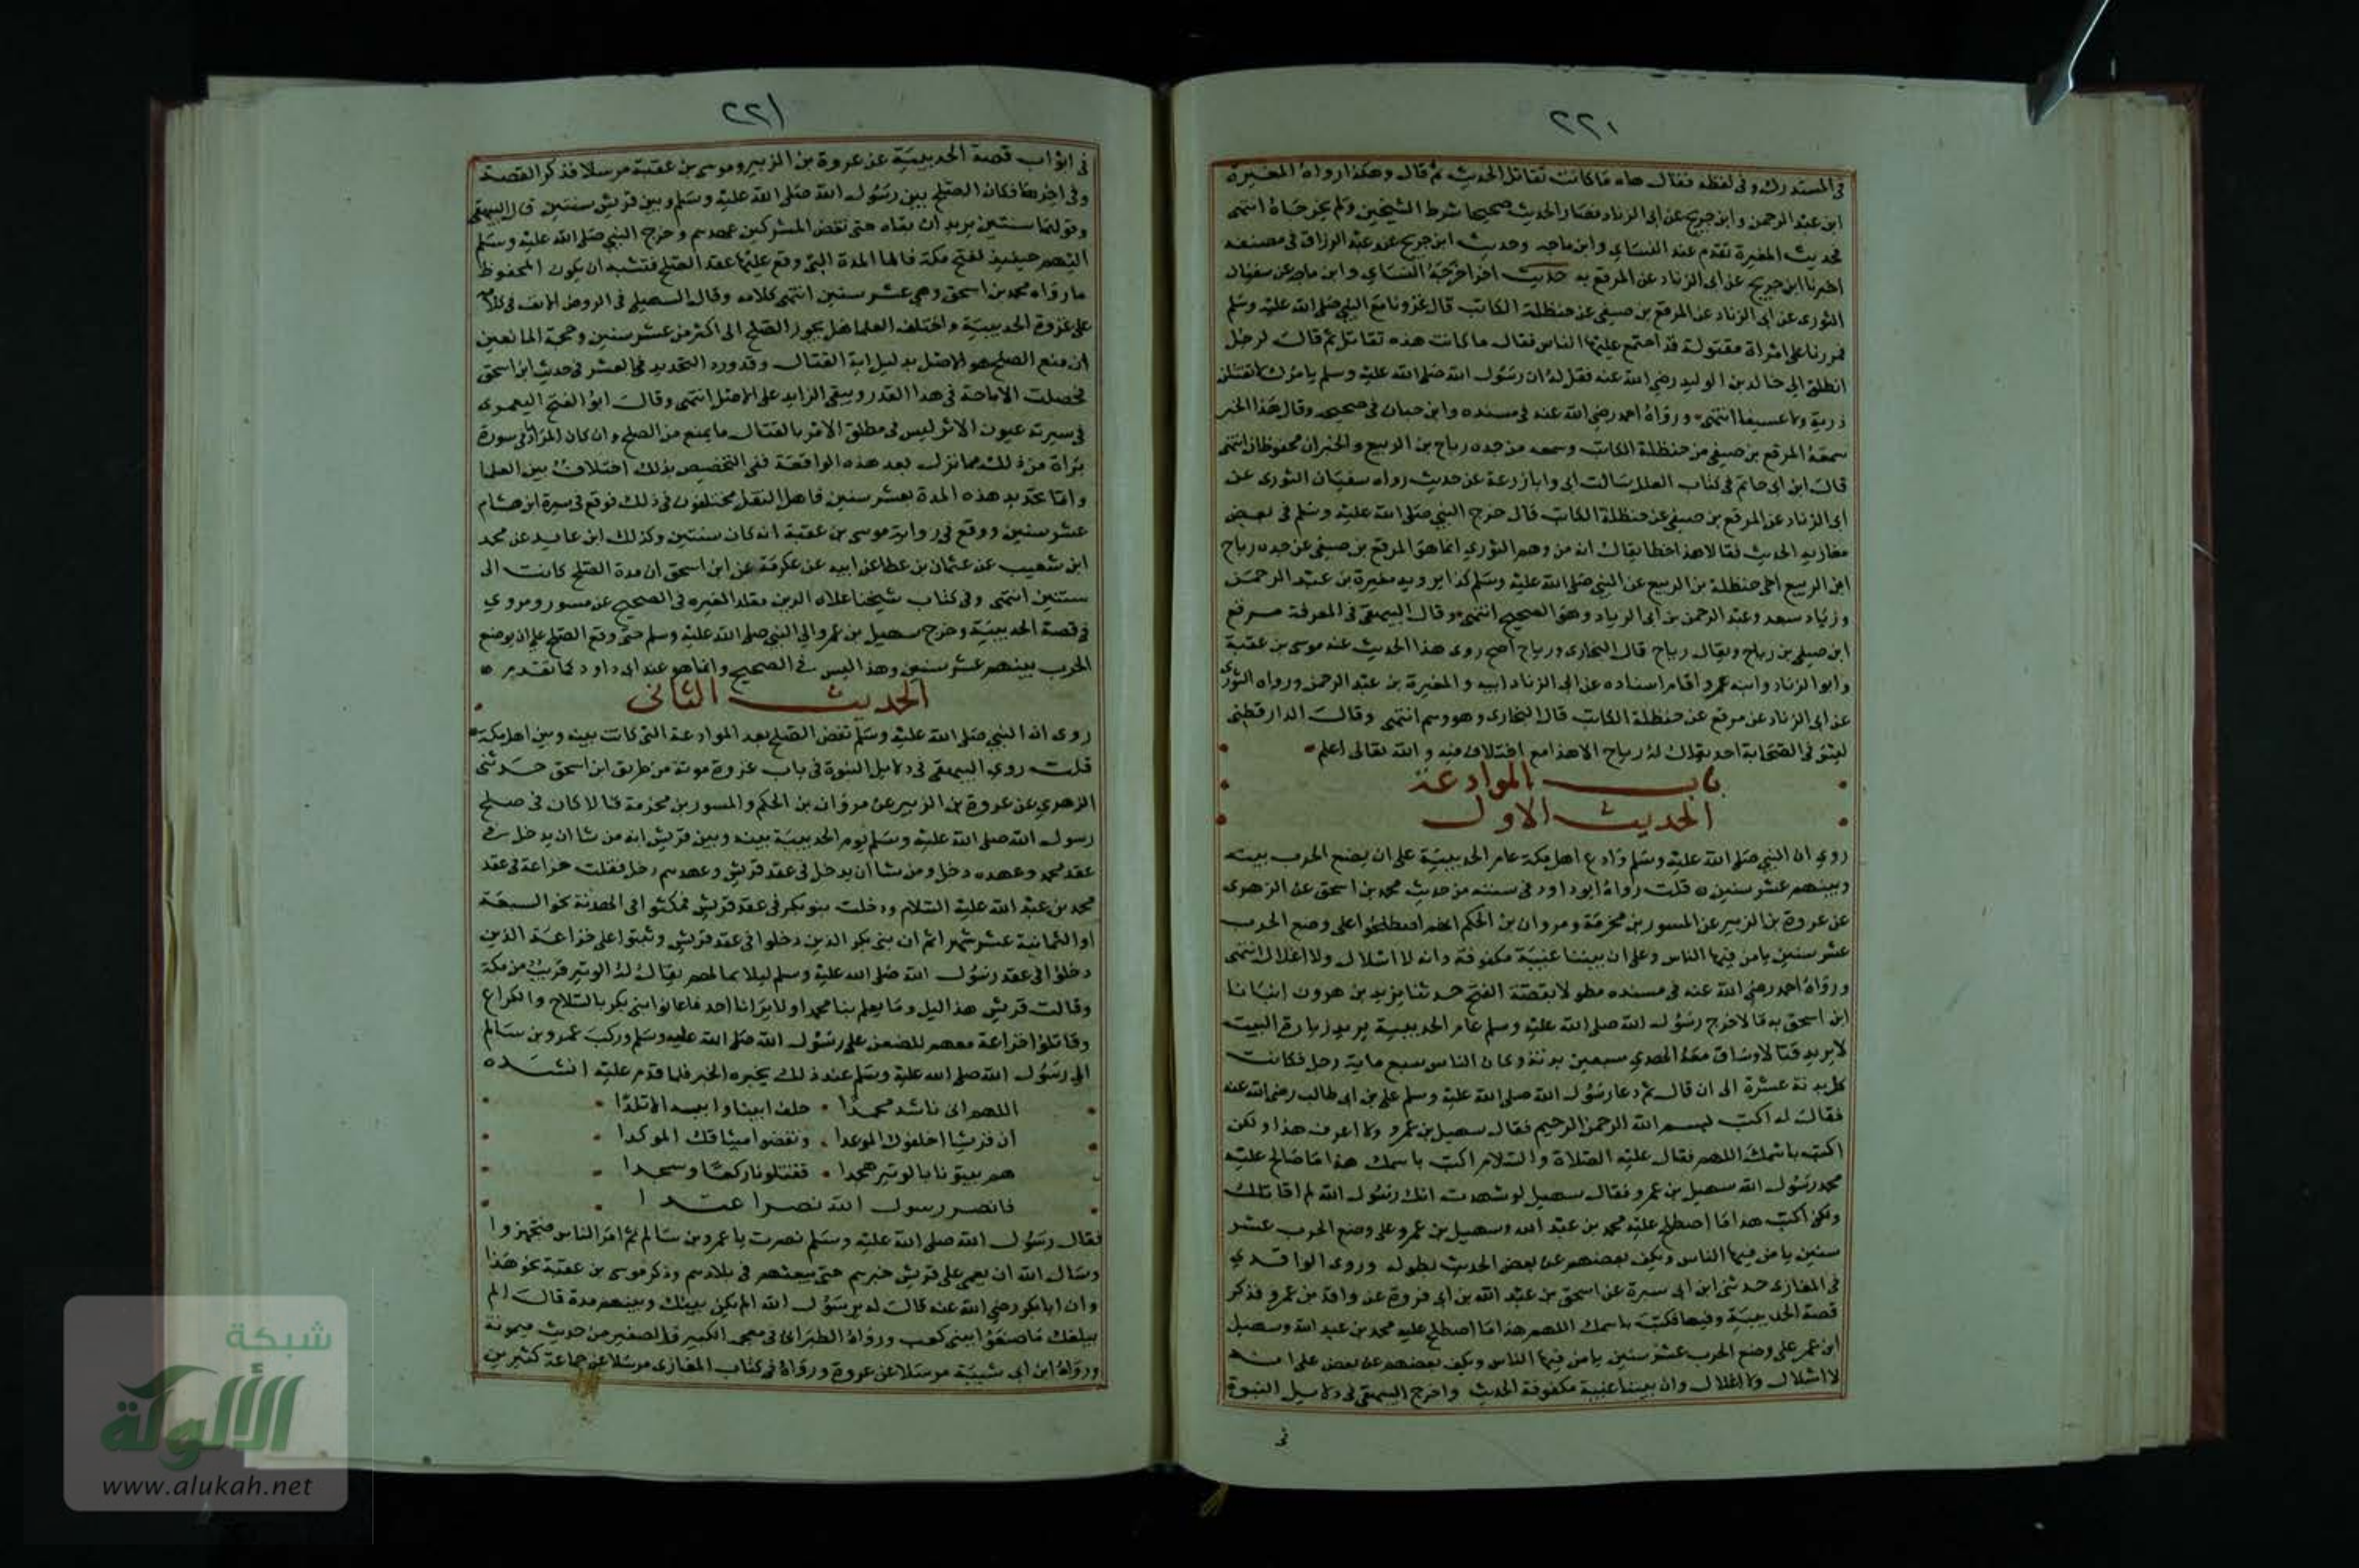 ٢٢٠
في المستدرك وفي لفظه فقال هاه ما كانت تقاتل الحديث ثم قال وهكذا رواه المغيرة
ابن عبد الرحمن وابن جريج عن ابي الزناد فصار الحديث صحيحا شرط الشيخين ولم يخرجاه انتهى
فحديث المغيرة تقدم عند النساي وابن ماجه وحديث ابن جريج عند عبد الرزاق في مصنفه
اخبرنا ابن جريج عن ابي الزناد عن المرقع به حديث اخر اخرجه النساي وابن ماجه عن سفيان
الثوري عن ابي الزناد عن المرقع بن صيفي عن حنظلة الكاتب قال غزونا مع النبي صلى الله عليه وسلم
فمررنا على امراة مقتولة قد اجتمع عليها الناس فقال ما كانت هذه تقاتل ثم قال لرجل
انطلق الي خالد بن الوليد رضي الله عنه فقل له ان رسول الله صلى الله عليه وسلم يامرك لا تقتلن
ذرية ولا عسيفا انتهى ورواه احمد رضي الله عنه في مسنده وابن حبان في صحيحه وقال هذا الخبر
سمعه المرقع بن صيفي من حنظلة الكاتب وسمعه من جده رباح بن الربيع والخبران محفوظان انتهى
قال ابن ابي حاتم في كتاب العلل سالت ابي وابا زرعة عن حديث رواه سفيان الثوري عن
ابي الزناد عن المرقع بن صيفي عن حنظلة الكاتب قال خرج النبي صلى الله عليه وسلم في بعض
مغازيه الحديث فقالا هذا خطا يقال انه من وهم الثوري انما هو المرقع بن صيفي عن جده رباح
ابن الربيع اخي حنظلة بن الربيع عن النبي صلى الله عليه وسلم كذا يرويه مغيرة بن عبد الرحمن
وزياد سعد وعبد الرحمن بن ابي الزياد وهو الصحيح انتهى وقال البيهقي في المعرفة مرقع
ابن صيفي بن رباح ويقال رياح قال البخاري ورباح اصح روى هذا الحديث عنه موسى بن عقبة
وابو الزناد وابنه عمر واقام اسناده عن ابي الزناد ابنه والمغيرة بن عبد الرحمن ورواه الثوري
عن ابي الزناد عن مرقع عن حنظلة الكاتب قال البخاري وهو وهم انتهى وقال الدارقطني
ليس في الصحابة احد يقال له رياح الا هذا مع اختلاف فيه والله تعالى اعلم
باب الموادعة
الحديث الاول
روي ان النبي صلى الله عليه وسلم وادع اهل مكة عام الحديبية على ان يضع الحرب بينه
وبينهم عشر سنين قلت رواه ابو داود في سننه من حديث محمد بن اسحق عن الزهري
عن عروة بن الزبير عن المسور بن مخرمة ومروان بن الحكم انهم اصطلحوا على وضع الحرب
عشر سنين يامن فيها الناس وعلى ان بيننا عيبة مكفوفة وانه لا اسلال ولا اغلال انتهى
ورواه احمد رضي الله عنه في مسنده مطولا بقصة الفتح حدثنا يزيد بن هرون انبانا
ابن اسحق به قالا خرج رسول الله صلى الله عليه وسلم عام الحديبية يريد زيارة البيت
لا يريد قتالا وساق معه الهدي سبعين بدنة وكان الناس سبع ماية رجل فكانت
كل بدنة عشرة الى ان قال ثم دعا رسول الله صلى الله عليه وسلم علي بن ابي طالب رضي الله عنه
فقال له اكتب بسم الله الرحمن الرحيم فقال سهيل بن عمرو ولا اعرف هذا ولكن
اكتب باسمك اللهم فقال عليه الصلاة والسلام اكتب باسمك هذا ما صالح عليه
محمد رسول الله سهيل بن عمرو فقال سهيل لو شهدت انك رسول الله لم اقاتلك
ولكن اكتب هذا ما اصطلح عليه محمد بن عبد الله وسهيل بن عمرو على وضع الحرب عشر
سنين يامن فيها الناس ويكف بعضهم عن بعض الحديث بطوله وروى الواقدي
في المغازي حدثني ابن ابي سبرة عن اسحق بن عبد الله بن ابي فروة عن واقد بن عمرو فذكر
قصة الحديبية وفيها فكتب باسمك اللهم هذا ما اصطلح عليه محمد بن عبد الله وسهيل
ابن عمر على وضع الحرب عشر سنين يامن فيها الناس ويكف بعضهم عن بعض على انه
لا اسلال ولا اغلال وان بيننا عيبة مكفوفة الحديث واخرج البيهقي في دلايل النبوة
٢٢١
في ابواب قصة الحديبية عن عروة بن الزبير وموسى بن عقبة مرسلا فذكر القصة
وفي اخرها فكان الصلح بين رسول الله صلى الله عليه وسلم وبين قريش سنتين قال البيهقي
وقولهما سنتين يريد ان بقاه حتى نقض المشركين عهدهم وخرج النبي صلى الله عليه وسلم
اليهم حينيذ لفتح مكة فاما المدة التي وقع عليها عقد الصلح فتشبه ان يكون المحفوظ
ما رواه محمد بن اسحق وهي عشر سنين انتهى كلامه وقال السهيلي في الروض الانف في كلامه
على غزوة الحديبية واختلف العلما هل يجوز الصلح الى اكثر من عشر سنين وحجة المانعين
ان منع الصلح هو الاصل بدليل اية القتال وقد ورد التحديد في العشر في حديث ابن اسحق
فحصلت الاباحة في هذا القدر ويبقى الزايد على الاصل انتهى وقال ابو الفتح اليعمري
في سيرته عيون الاثر ليس في مطلق الامر بالقتال ما يمنع من الصلح وان كان المراد في سورة
براة من ذلك مما نزل بعد هذه الواقعة ففي التخصيص بذلك اختلاف بين العلما
واما تحديد هذه المدة بعشر سنين فاهل النقل مختلفون في ذلك فوقع في سيرة ابن هشام
عشر سنين ووقع في رواية موسى بن عقبة انه كان سنتين وكذلك ابن عايد عن محمد
ابن شعيب عن عثمان بن عطا عن ابيه عن عكرمة عن ابن اسحق ان مدة الصلح كانت الى
سنتين انتهى وفي كتاب شيخنا علاه الدين مقلد الغيره في الصحيح عن مسور ومروي
في قصة الحديبية وخرج سهيل بن عمرو الي النبي صلى الله عليه وسلم حتى وقع الصلح على ان يوضع
الحرب بينهم عشر سنين وهذا اليس في الصحيح وانما هو عند ابي داود كما تقدم
الحديث الثاني
روى ان النبي صلى الله عليه وسلم نقض الصلح بعد الموادعة التي كانت بينه وبين اهل مكة
قلت روي البيهقي في دلايل النبوة في باب غزوة موتة من طريق ابن اسحق حدثني
الزهري عن عروة بن الزبير عن مروان بن الحكم والمسور بن مخرمة قالا كان في صلح
رسول الله صلى الله عليه وسلم يوم الحديبية بينه وبين قريش انه من شا ان يدخل في
عقد محمد وعهده دخل ومن شا ان يدخل في عقد قريش وعهدهم دخل فدخلت خزاعة في عقد
محمد بن عبد الله عليه السلام ودخلت بنو بكر في عقد قريش فمكثوا في الهدنة نحو السبعة
او الثمانية عشر شهرا ثم ان بني بكر الذين دخلوا في عقد قريش وثبوا على خزاعة الذين
دخلوا في عقد رسول الله صلى الله عليه وسلم ليلا بما لهم يقال له الوتير قريب من مكة
وقالت قريش هذا ليل وما يعلم بنا محمد ولا يرانا احد فاعانوا بني بكر بالسلاح والكراع
وقاتلوا خزاعة معهم للضغن على رسول الله صلى الله عليه وسلم وركب عمرو بن سالم
الي رسول الله صلى الله عليه وسلم عند ذلك يخبره الخبر فلما قدم عليه انشده
اللهم اني ناشد محمدا • حلف ابينا وابيه الاتلدا
ان قريشا اخلفوك الموعدا • ونقضوا ميثاقك الموكدا
هم بيتونا بالوتير هجدا • فقتلونا ركعا وسجدا
فانصر رسول الله نصرا عتدا
فقال رسول الله صلى الله عليه وسلم نصرت يا عمرو بن سالم ثم امر الناس فتجهزوا
وسال الله ان يعمي على قريش خبرهم حتى يبعثهم في بلادهم وذكر موسى بن عقبة نحو هذا
وان ابا بكر رضي الله عنه قال له يرسول الله الم يكن بينك وبينهم مدة قال الم
يبلغك ما صنعوا ببني كعب ورواه الطبراني في معجمه الكبير والصغير من حديث ميمونة
ورواه ابن ابي شيبة مرسلا عن عروة ورواه في كتاب المغازي مرسلا عن جماعة كثيرين
شبكة
الألوكة
www.alukah.net